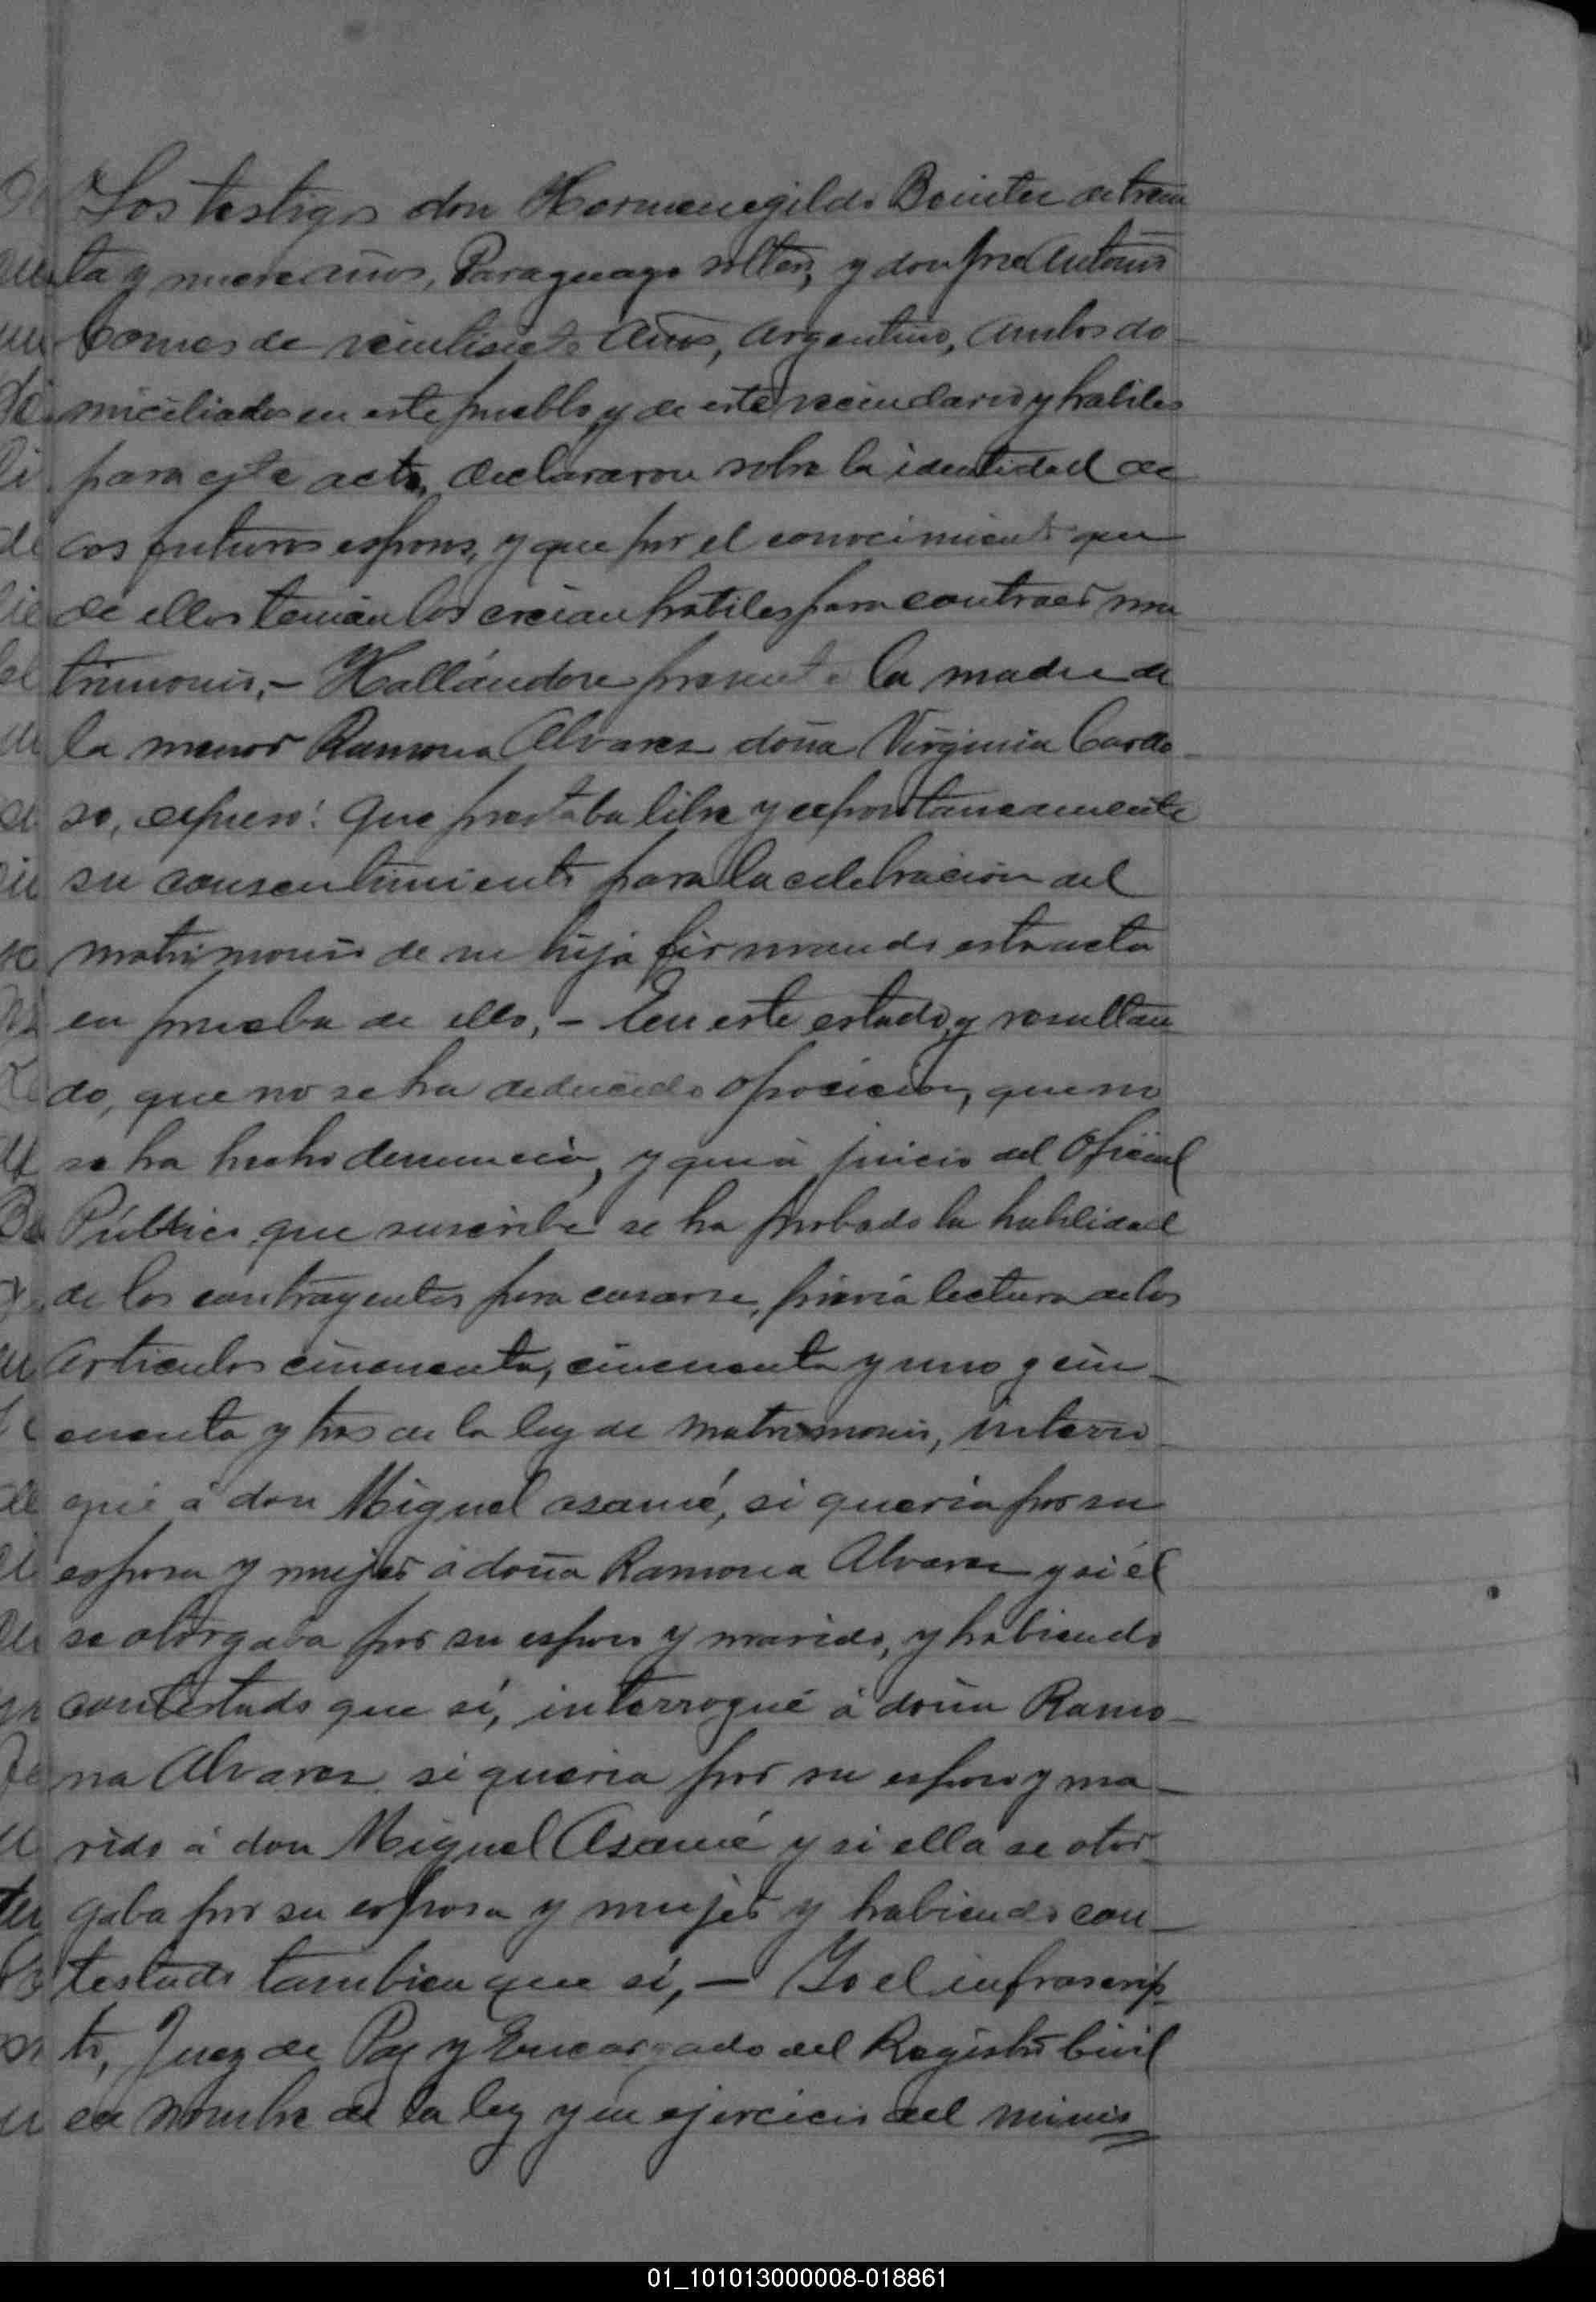 Los testigos don Hermenegildo Benitez de trein
ta y nueve años, Paraguayo soltero, y don José Antonio
Gomes de veintisiete años, Argentino, ambos do-
miciliados en este pueblo y de este vecindario y habiles
para este acto, declararon sobre la identidad de
los futuros esposos, y que por el conocimiento que
de ellos tenian los creian habiles para contraer ma-
trimonio.- Hallándose presente la madre de
la menor Ramona Alvarez doña Virginia Cardo-
so, expresó: Que prestaba libre y espontaneamente
su consentimiento para la celebracion del
matrimonio de su hija firmando esta acta
en prueba de ello.- En este estado, y resultan
do, que no se ha deducido oposicion, que no
se ha hecho denuncia, y que á juicio del Oficial
Público que suscribe se ha probado la habilidad
de los contrayentes para casarse, prévia lectura de los
articulos cincuenta, cincuenta y uno y cin-
cuenta y tres de la ley de matrimonio, interro-
gué á don Miguel asamé, si queria por su
esposa y mujer á doña Ramona Alvarez y si él
se otorgaba por su esposo y marido, y habiendo
contestado que sí, interrogué á doña Ramo-
na Alvarez si queria por su esposo y ma-
rido á don Miguel Asamé y si ella se otor-
gaba por su esposa y mujer y habiendo con-
testado tambien que sí,- Yo el infrascrip-
to, Juez de Paz y Encargado del Registro Civil
en nombre de la ley y en ejercicio del minis
01_101013000008-018861